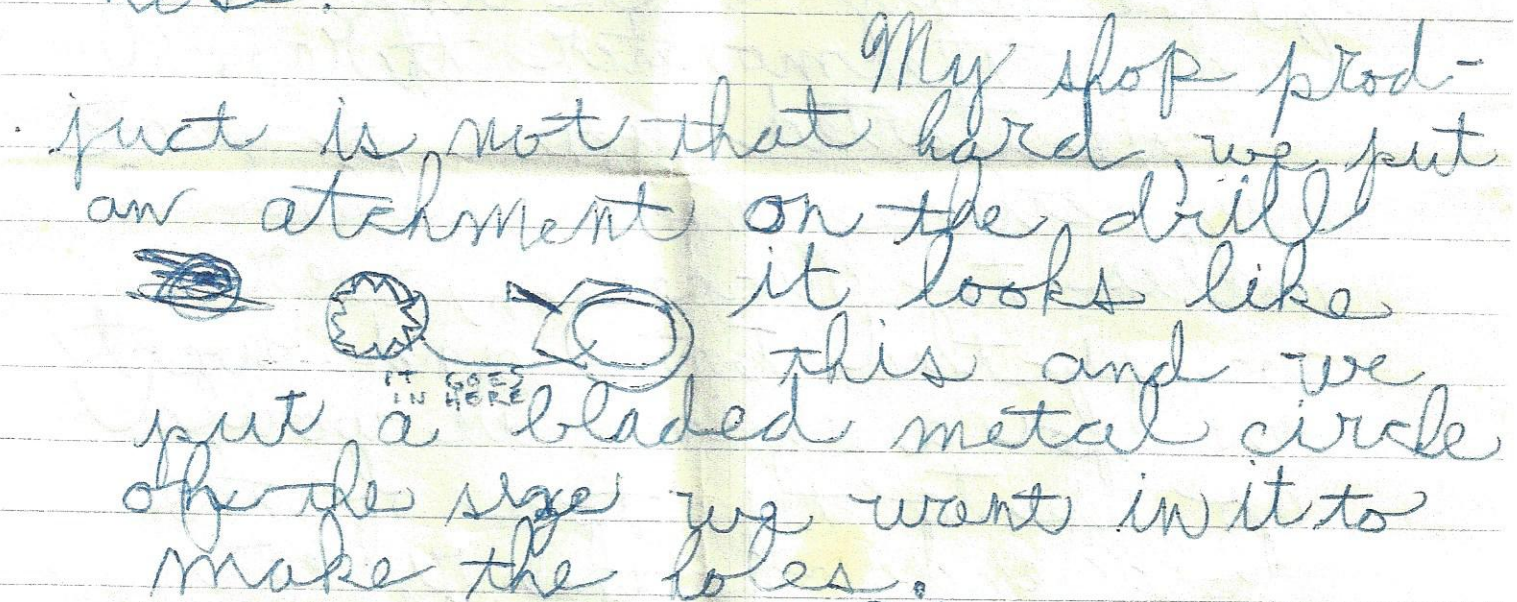 My shop prod-
juct is not that hard, we put
an atchment on the drill
it looks like
this and we
IT GOES
IN HERE
put a bladed metal circle
of the size we want in it to
make the holes.